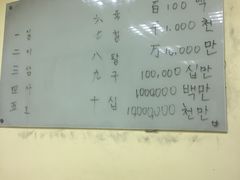 六 육 百 100 백
一 일 七 칠 千 1.000 천
二 이 八 팔 万 10,000 만
三 삼 九 구 100,000 십만
四 사 十 십 1000000 백만
五 오 10000000 천만